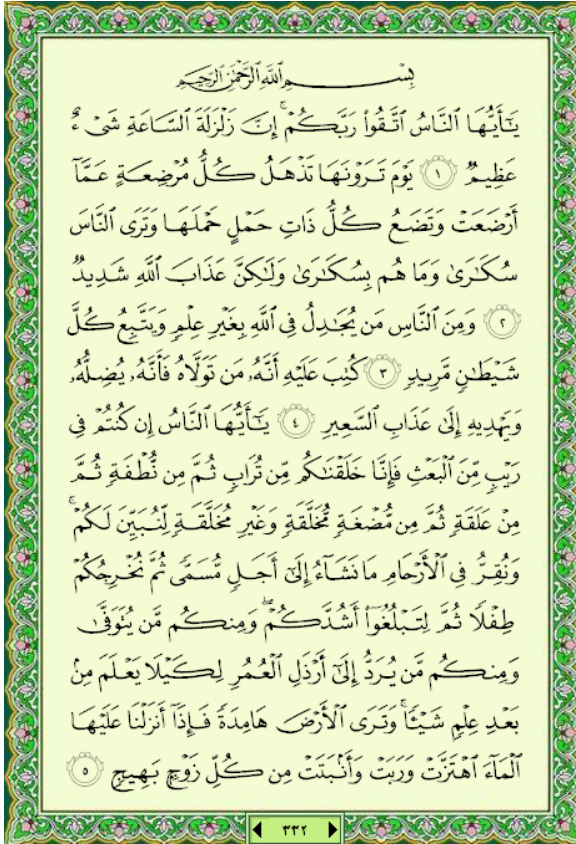 بِسْمِ ٱللَّهِ ٱلرَّحْمَٰنِ ٱلرَّحِيمِ
يَٰٓأَيُّهَا ٱلنَّاسُ ٱتَّقُوا۟ رَبَّكُمْ ۚ إِنَّ زَلْزَلَةَ ٱلسَّاعَةِ شَىْءٌ
عَظِيمٌ ١ يَوْمَ تَرَوْنَهَا تَذْهَلُ كُلُّ مُرْضِعَةٍ عَمَّآ
أَرْضَعَتْ وَتَضَعُ كُلُّ ذَاتِ حَمْلٍ حَمْلَهَا وَتَرَى ٱلنَّاسَ
سُكَٰرَىٰ وَمَا هُم بِسُكَٰرَىٰ وَلَٰكِنَّ عَذَابَ ٱللَّهِ شَدِيدٌ
٢ وَمِنَ ٱلنَّاسِ مَن يُجَٰدِلُ فِى ٱللَّهِ بِغَيْرِ عِلْمٍ وَيَتَّبِعُ كُلَّ
شَيْطَٰنٍ مَّرِيدٍ ٣ كُتِبَ عَلَيْهِ أَنَّهُۥ مَن تَوَلَّاهُ فَأَنَّهُۥ يُضِلُّهُۥ
وَيَهْدِيهِ إِلَىٰ عَذَابِ ٱلسَّعِيرِ ٤ يَٰٓأَيُّهَا ٱلنَّاسُ إِن كُنتُمْ فِى
رَيْبٍ مِّنَ ٱلْبَعْثِ فَإِنَّا خَلَقْنَٰكُم مِّن تُرَابٍ ثُمَّ مِن نُّطْفَةٍ ثُمَّ
مِنْ عَلَقَةٍ ثُمَّ مِن مُّضْغَةٍ مُّخَلَّقَةٍ وَغَيْرِ مُخَلَّقَةٍ لِّنُبَيِّنَ لَكُمْ ۚ
وَنُقِرُّ فِى ٱلْأَرْحَامِ مَا نَشَآءُ إِلَىٰٓ أَجَلٍ مُّسَمًّى ثُمَّ نُخْرِجُكُمْ
طِفْلًا ثُمَّ لِتَبْلُغُوٓا۟ أَشُدَّكُمْ ۖ وَمِنكُم مَّن يُتَوَفَّىٰ
وَمِنكُم مَّن يُرَدُّ إِلَىٰٓ أَرْذَلِ ٱلْعُمُرِ لِكَيْلَا يَعْلَمَ مِنۢ
بَعْدِ عِلْمٍ شَيْـًٔا ۚ وَتَرَى ٱلْأَرْضَ هَامِدَةً فَإِذَآ أَنزَلْنَا عَلَيْهَا
ٱلْمَآءَ ٱهْتَزَّتْ وَرَبَتْ وَأَنۢبَتَتْ مِن كُلِّ زَوْجٍۭ بَهِيجٍ ٥
٣٣٢